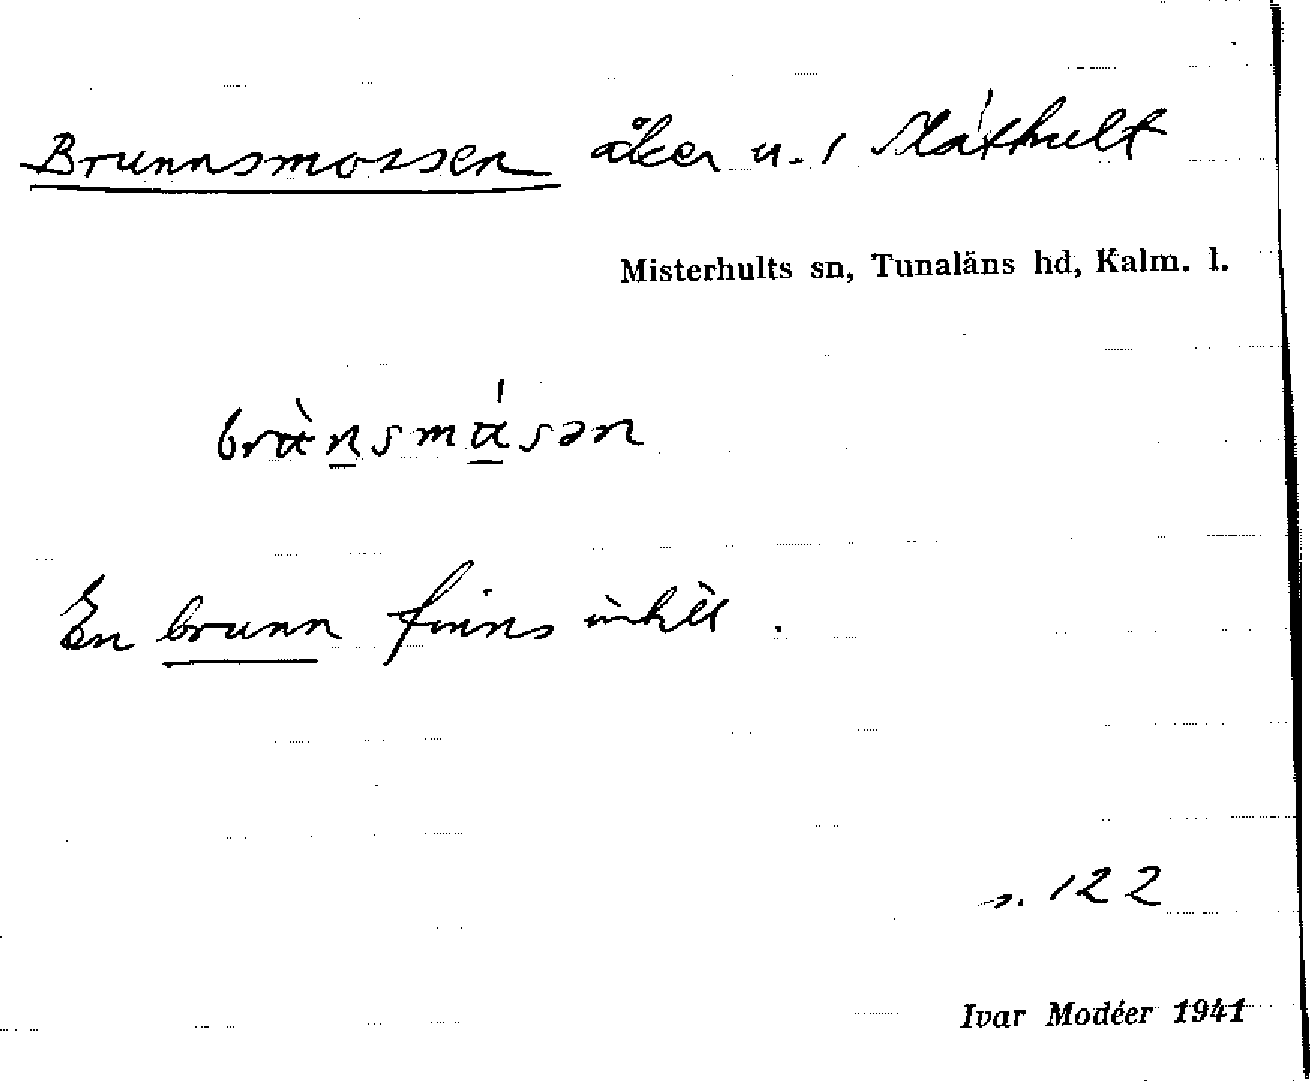 Brunnsmossen åker u. 1 Släthult
Misterhults sn, Tunaläns hd, Kalm. l.
En brunn finns
s. 122
Ivar Modéer 1941